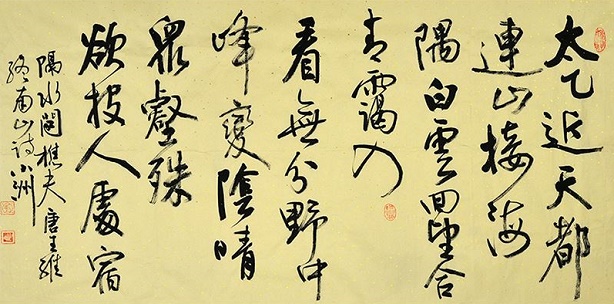 太乙近天都
連山接海
隅白雲回望合
青靄入
看無分野中
峰變陰晴
眾壑殊
欲投人處宿
隔水問樵夫 唐王維
終南山詩 小洲